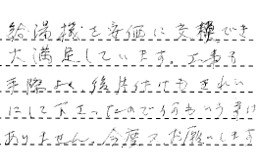 給湯機を安価に交換でき
大満足しています。工事も
手際よく、後片付けもきれい
にして下さったので何もいう事は
ありません。今度又お願いします